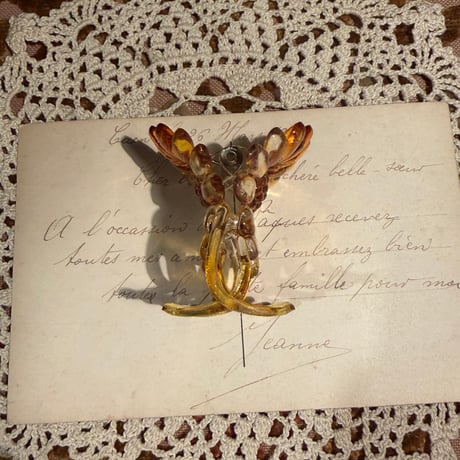 26
Cher chéré belle-sœur
A l'occasion aques recevez
toutes mes am et embrassez bien
toute la te famille pour moi
Jeanne